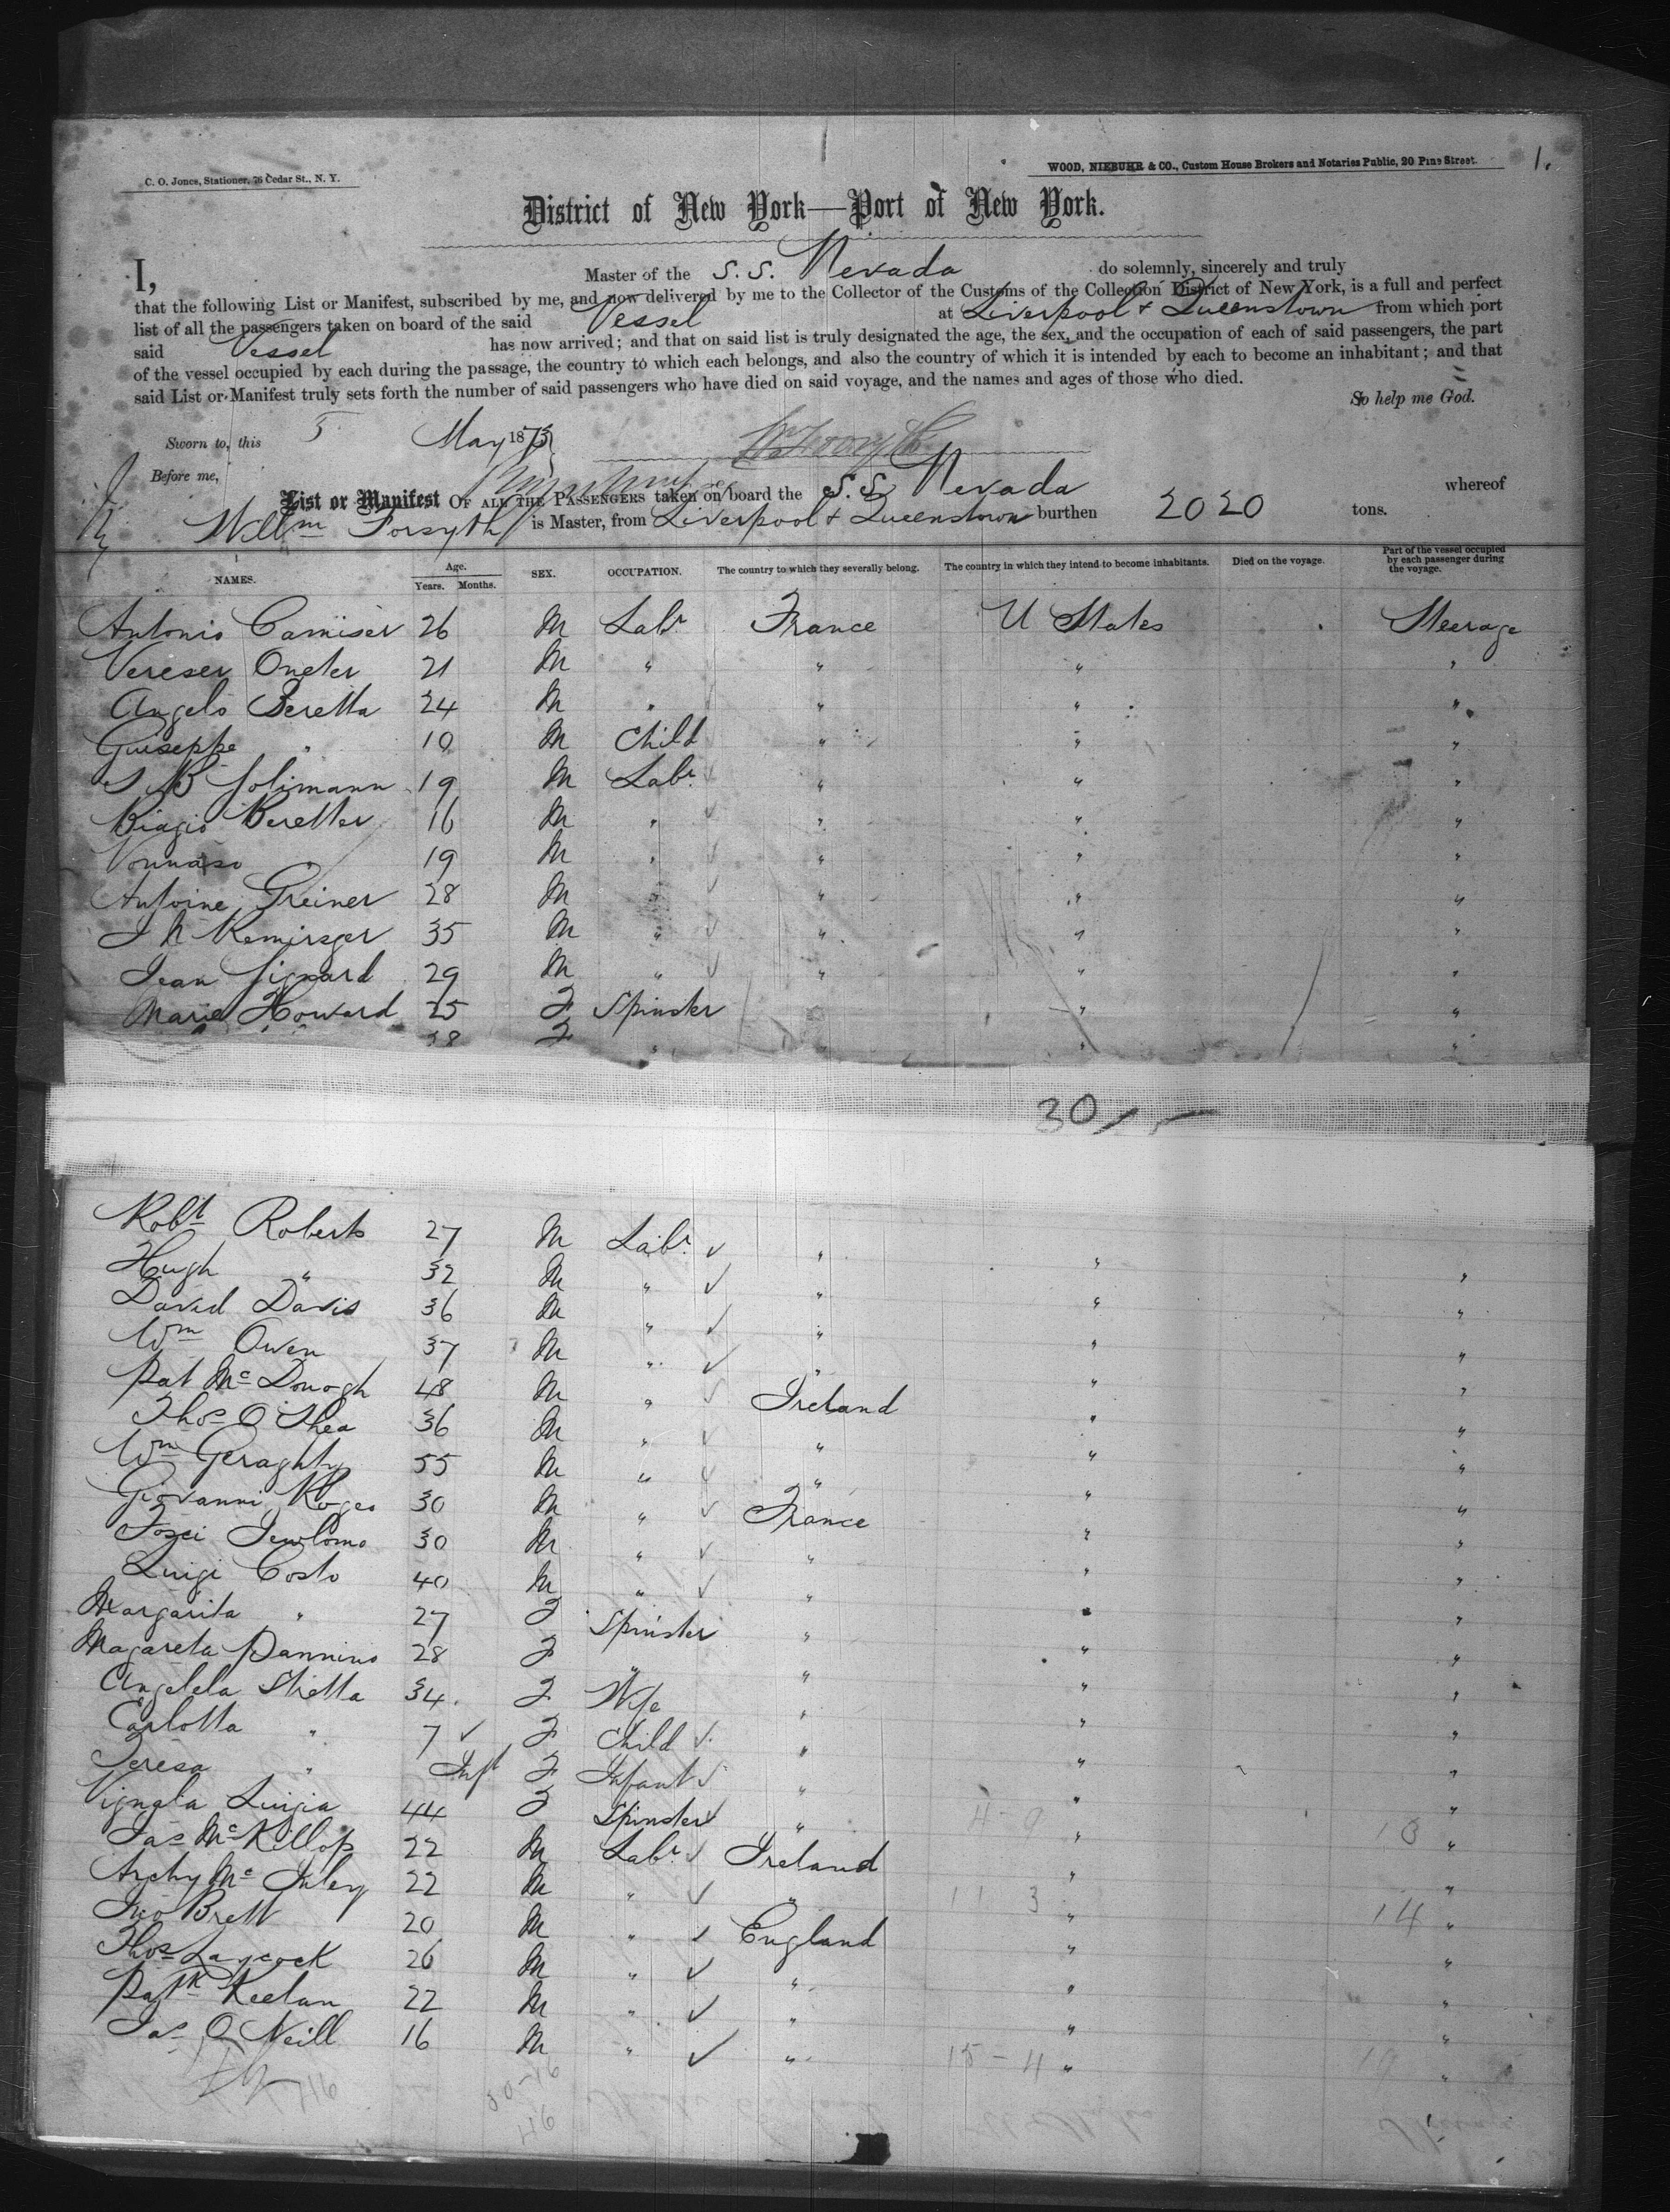 C. O. Jones, Stationer, 76 Cedar St., N. Y.
WOOD, NIEBUHR & CO., Custom House Brokers and Notaries Public, 20 Pine Street.
1.
District of New York—Port of New York.
I, Master of the S. S. Nevada do solemnly, sincerely and truly
that the following List or Manifest, subscribed by me, and now delivered by me to the Collector of the Customs of the Collection District of New York, is a full and perfect
list of all the passengers taken on board of the said Vessel at Liverpool & Queenstown from which port
said Vessel has now arrived; and that on said list is truly designated the age, the sex, and the occupation of each of said passengers, the part
of the vessel occupied by each during the passage, the country to which each belongs, and also the country of which it is intended by each to become an inhabitant; and that
said List or Manifest truly sets forth the number of said passengers who have died on said voyage, and the names and ages of those who died.
So help me God.
Sworn to, this 5 May 1873
Wm Forsyth
Before me,
List or Manifest OF ALL THE PASSENGERS taken on board the S. S. Nevada whereof
Willm Forsyth is Master, from Liverpool & Queenstown burthen 2020 tons.
NAMES. Age. Years. Months. SEX. OCCUPATION. The country to which they severally belong. The country in which they intend to become inhabitants. Died on the voyage. Part of the vessel occupied by each passenger during the voyage.
Antonio Camiser 26 M Labr France U States Steerage
Vereser Oneter 21 M " " " "
Angelo Beretta 24 M " " " "
Guiseppe " 10 M Child " " "
19 M Labr " " "
Biagio Beretter 16 M " " " "
19 M " " " "
Antoine Greiner 28 M " " "
35 M " " " "
Jean 29 M " " " "
Marie Howard 25 F Spinster " "
38 F " " "
30
Robt Roberts 27 M Labr " " "
Hugh " 32 M " " " "
David Davis 36 M " " " "
Wm Owen 37 M " " " "
Pat McDonogh 48 M " Ireland " "
Thos O'Shea 36 M " " " "
Wm Geraghty 55 M " " " "
Giovanni 30 M " France " "
30 M " " " "
Luigi Costo 40 M " " " "
Margarita " 27 F Spinster " " "
Magareta Pannino 28 F " " " "
Angelela Stretta 34 F Wife " " "
Carlotta " 7 F Child " " "
Teresa " Inft F Infant " " "
Vignala Luigia 44 F Spinster " " "
Jas McKillop 22 M Labr Ireland " "
Archy Mc 22 M " " " "
Jno Brett 20 M " England " "
Thos Laycock 26 M " " " "
Patk Keelan 22 M " " " "
Jas O'Neill 16 M " " " "